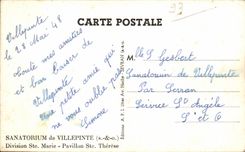 CARTE POSTALE
Villepinte
le 28 Mai 48
toute mes amitiés
et bon baiser de
Villepinte
une petite amie qui
ne vous oublie pas
Simone
Melle Gesbert
Sanatorium de Villepinte
Par Sevran
Service Ste Angèle
S et O
SANATORIUM de VILLEPINTE (S.-&-O.)
Division Ste. Marie - Pavillon Ste. Thérèse